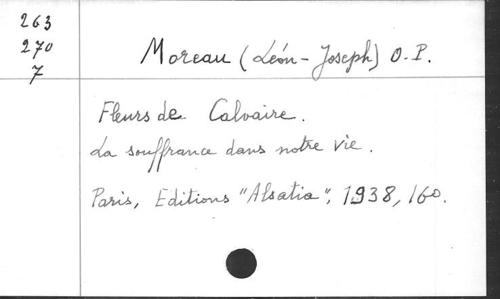 263
270
7
Moreau (Léon-Joseph) O.P.
Fleurs de Calvaire.
La souffrance dans notre vie.
Paris, Editions "Alsatia", 1938, 160.